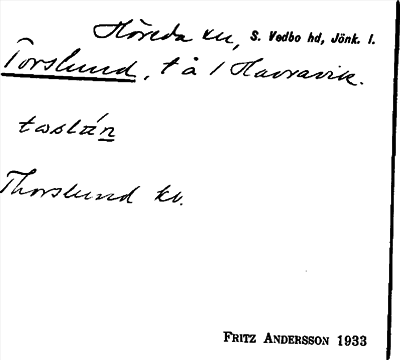 Höreda sn, S. Vedbo hd, Jönk. l.
Torslund, t å 1 Havravik.
toslún
Thorslund kv.
FRITZ ANDERSSON 1933